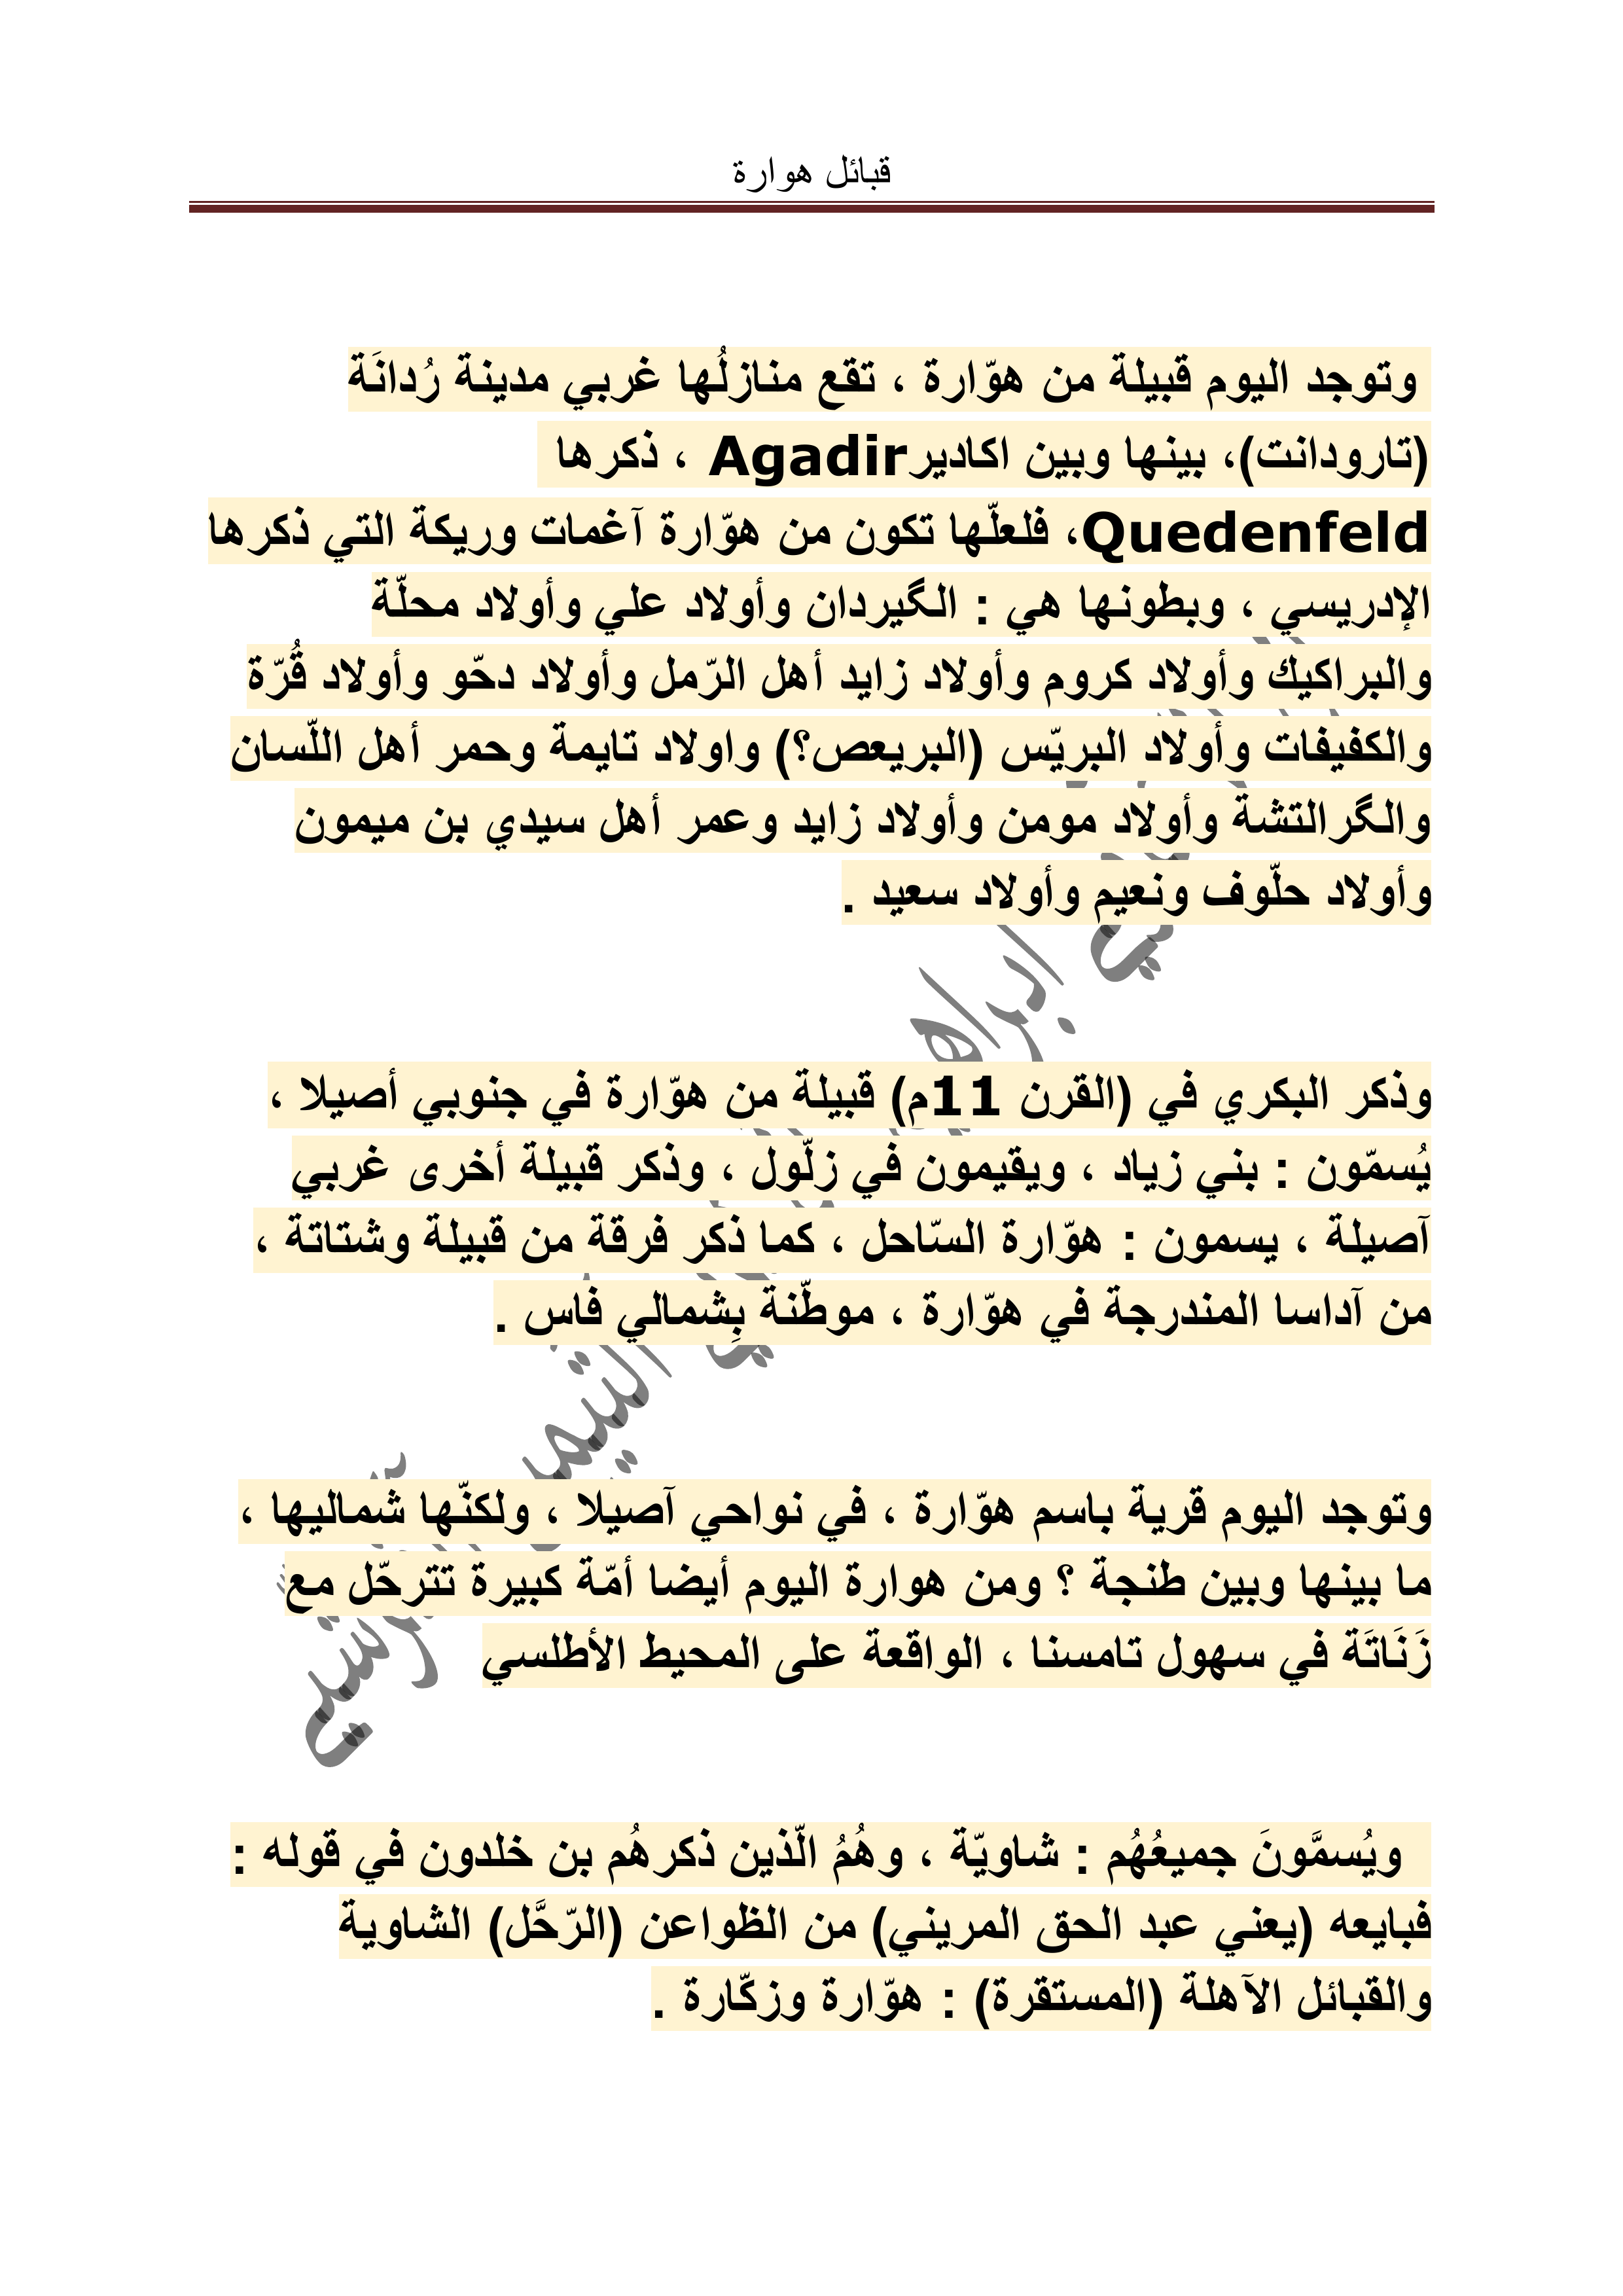 قبائل هوارة
وتوجد اليوم قبيلة من هوّارة ، تقع منازلُها غربي مدينة رُدانَة
(تارودانت)، بينها وبين اكاديرAgadir ، ذكرها
Quedenfeld، فلعلّها تكون من هوّارة آغمات وريكة التي ذكرها
الإدريسي ، وبطونها هي : الگيردان وأولاد علي وأولاد محلّة
والبراكيك وأولاد كروم وأولاد زايد أهل الرّمل وأولاد دحّو وأولاد قُرّة
والكفيفات وأولاد البريّس (البريعص؟) واولاد تايمة وحمر أهل اللّسان
والگرالتشة وأولاد مومن وأولاد زايد وعمر أهل سيدي بن ميمون
وأولاد حلّوف ونعيم وأولاد سعيد .
وذكر البكري في (القرن 11م) قبيلة من هوّارة في جنوبي أصيلا ،
يُسمّون : بني زياد ، ويقيمون في زلّول ، وذكر قبيلة أخرى غربي
آصيلة ، يسمون : هوّارة السّاحل ، كما ذكر فرقة من قبيلة وشتاتة ،
من آداسا المندرجة في هوّارة ، موطّنة بِشمالي فاس .
وتوجد اليوم قرية باسم هوّارة ، في نواحي آصيلا ، ولكنّها شماليها ،
ما بينها وبين طنجة ؟ ومن هوارة اليوم أيضا أمّة كبيرة تترحّل مع
زَنَاتَة في سهول تامسنا ، الواقعة على المحيط الأطلسي
ويُسمَّونَ جميعُهُم : شاويّة ، وهُمُ الّذين ذكرهُم بن خلدون في قوله :
فبايعه (يعني عبد الحق المريني) من الظواعن (الرّحَّل) الشاوية
والقبائل الآهلة (المستقرة) : هوّارة وزكّارة .